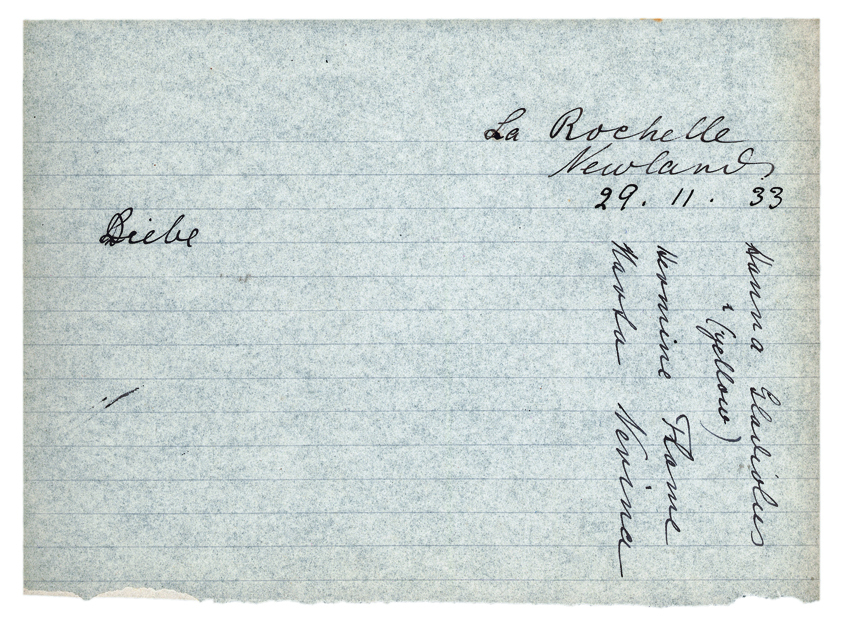 La Rochelle
Newlands
29. 11. 33
Liebe
Hanna Gladiolus
(yellow)
Hermine Flame
Marta Nerina